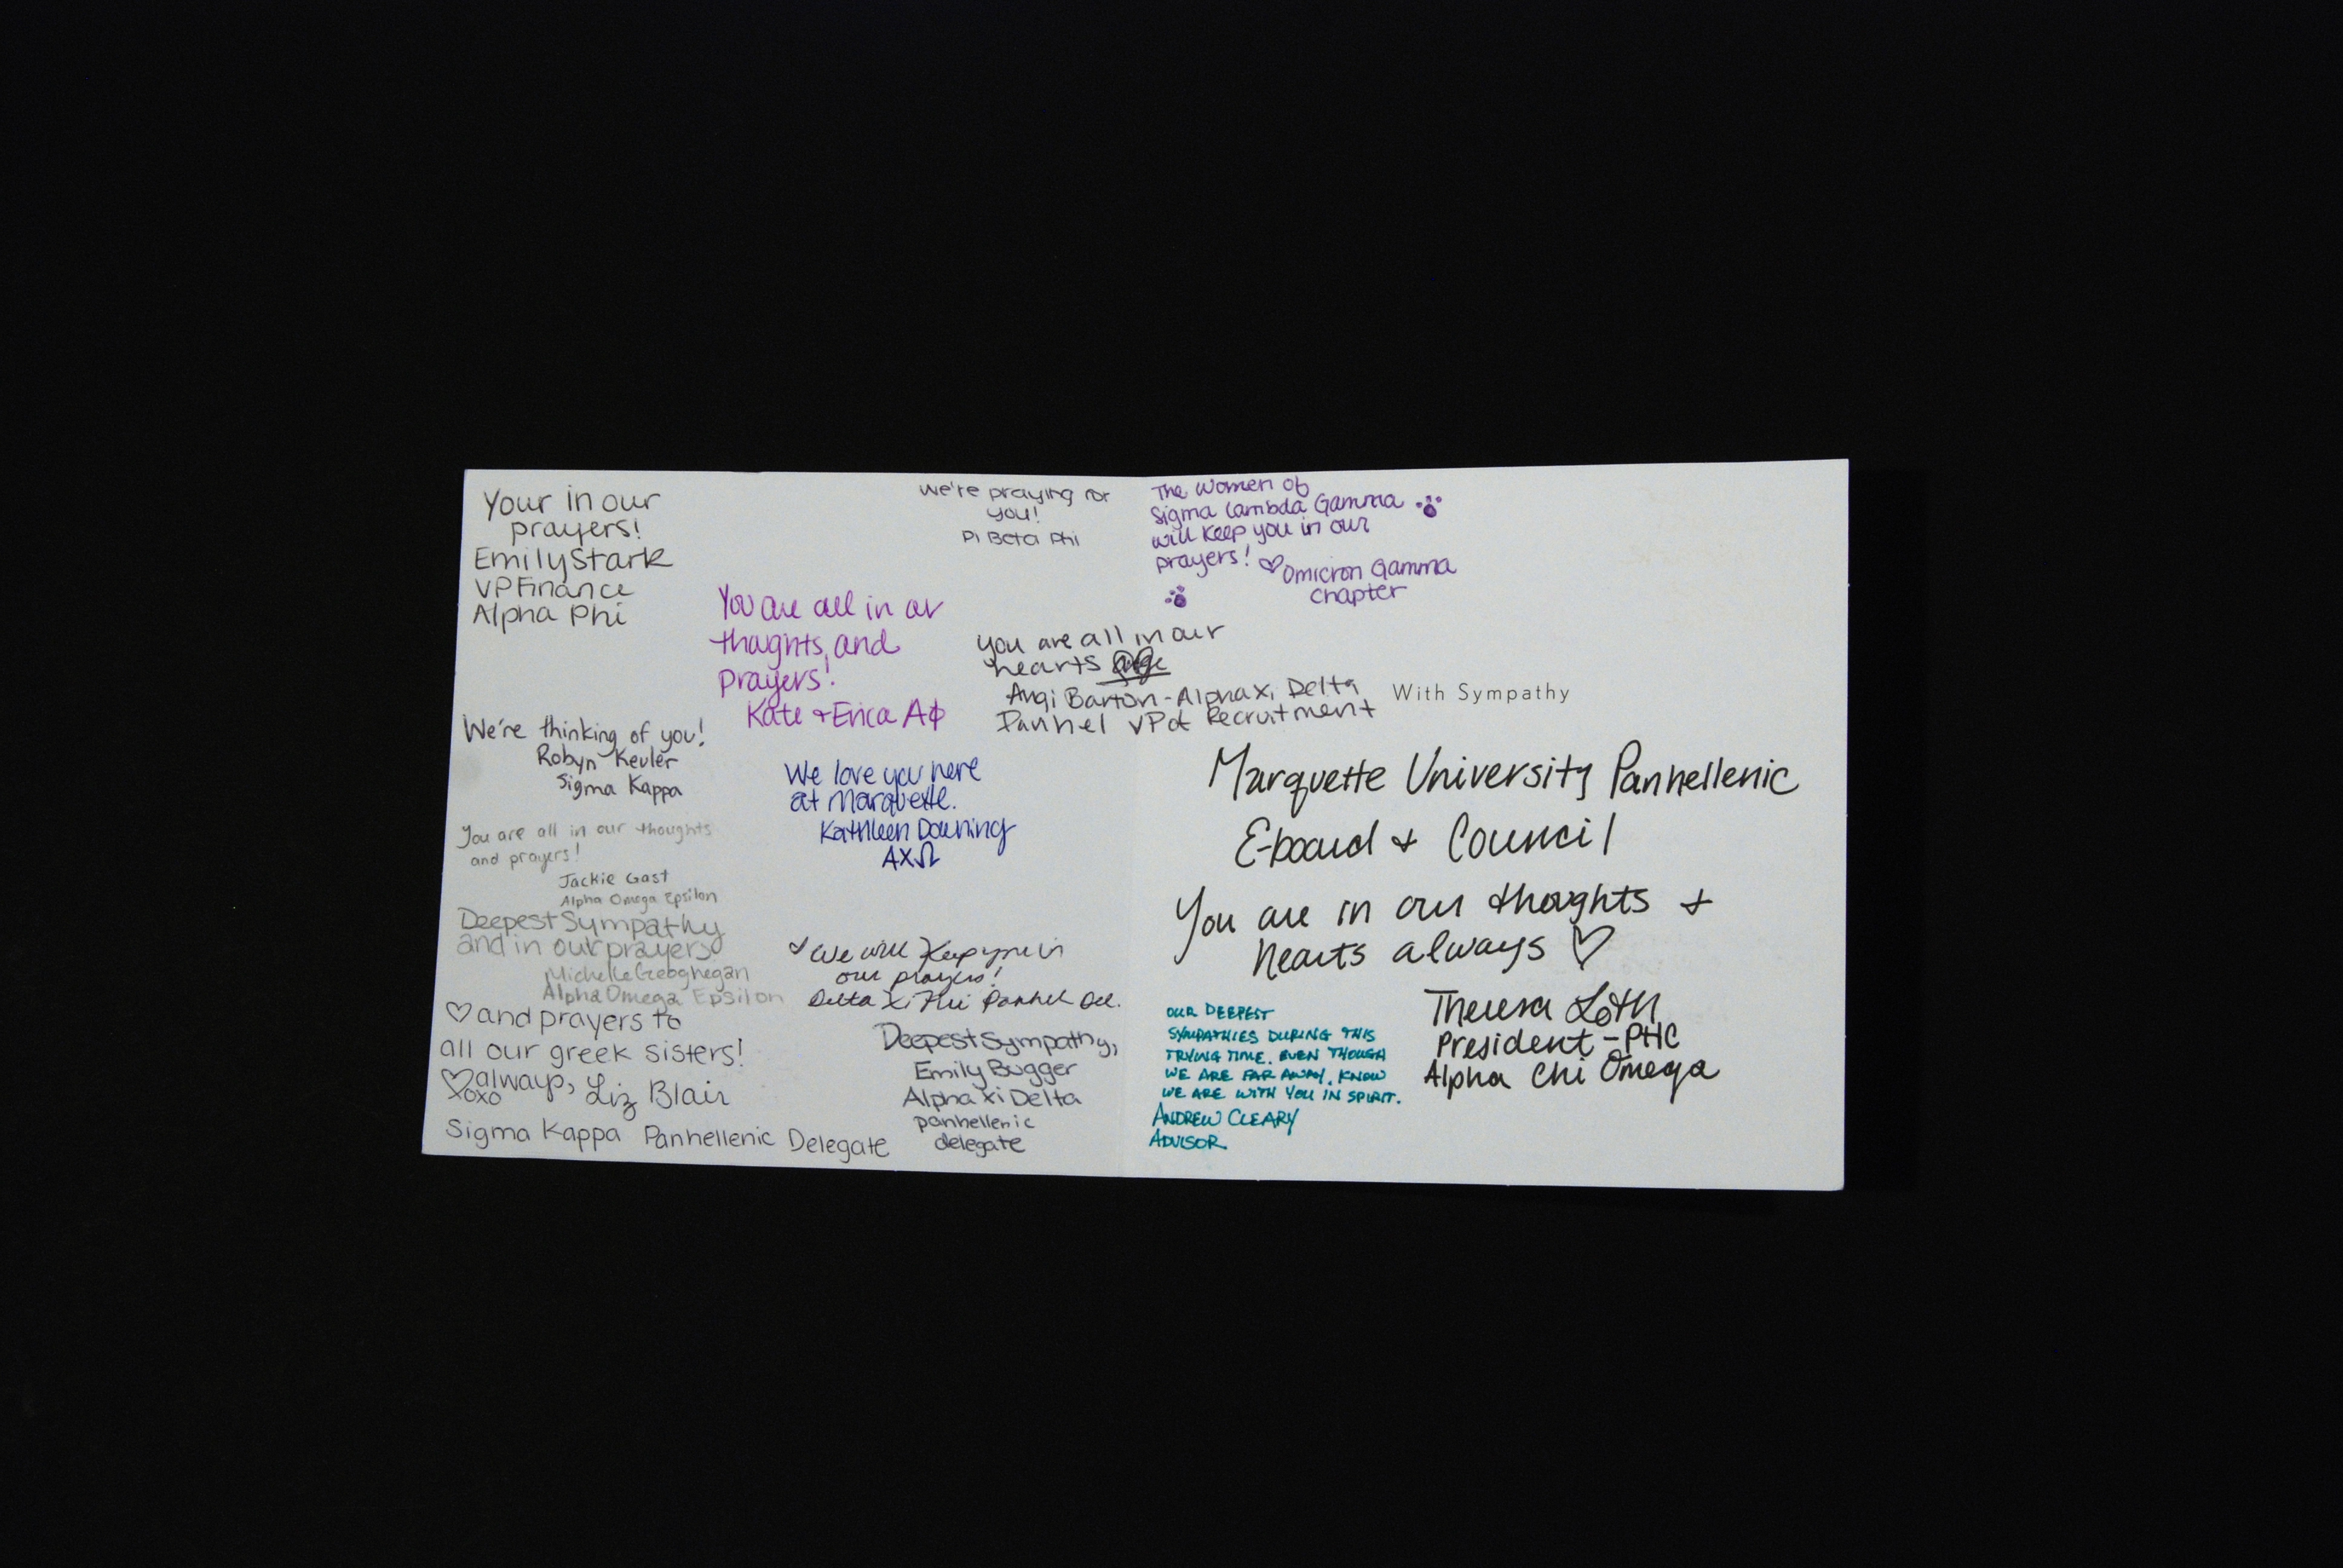 Your in our
prayers!
Emily Stark
VP Finance
Alpha Phi
We're thinking of you!
Robyn Kevler
Sigma Kappa
You are all in our thoughts
and prayers!
Jackie Gast
Alpha Omega Epsilon
Deepest Sympathy
and in our prayers
Michelle
Alpha Omega Epsilon
♡ and prayers to
all our greek sisters!
♡ always, Liz Blair
xoxo
Sigma Kappa Panhellenic Delegate
We're praying for
you!
Pi Beta Phi
You are all in our
thoughts, and
prayers!
Kate + Erica AΦ
We love you here
at Marquette.
Kathleen Downing
AXΩ
♡ We will keep you in
our prayers!
Delta Xi Phi Panhel Del.
Deepest Sympathy,
Emily Bugger
Alpha Xi Delta
panhellenic
delegate
The Women of
Sigma Lambda Gamma
will keep you in our
prayers! ♡ Omicron Gamma
chapter
you are all in our
hearts
Angi Barton - Alpha Xi Delta
Panhel VP of Recruitment
With Sympathy
Marquette University Panhellenic
E-board + Council
You are in our thoughts +
hearts always ♡
Theresa Loth
President - PHC
Alpha Chi Omega
OUR DEEPEST
SYMPATHIES DURING THIS
TRYING TIME. EVEN THOUGH
WE ARE FAR AWAY, KNOW
WE ARE WITH YOU IN SPIRIT.
ANDREW CLEARY
ADVISOR